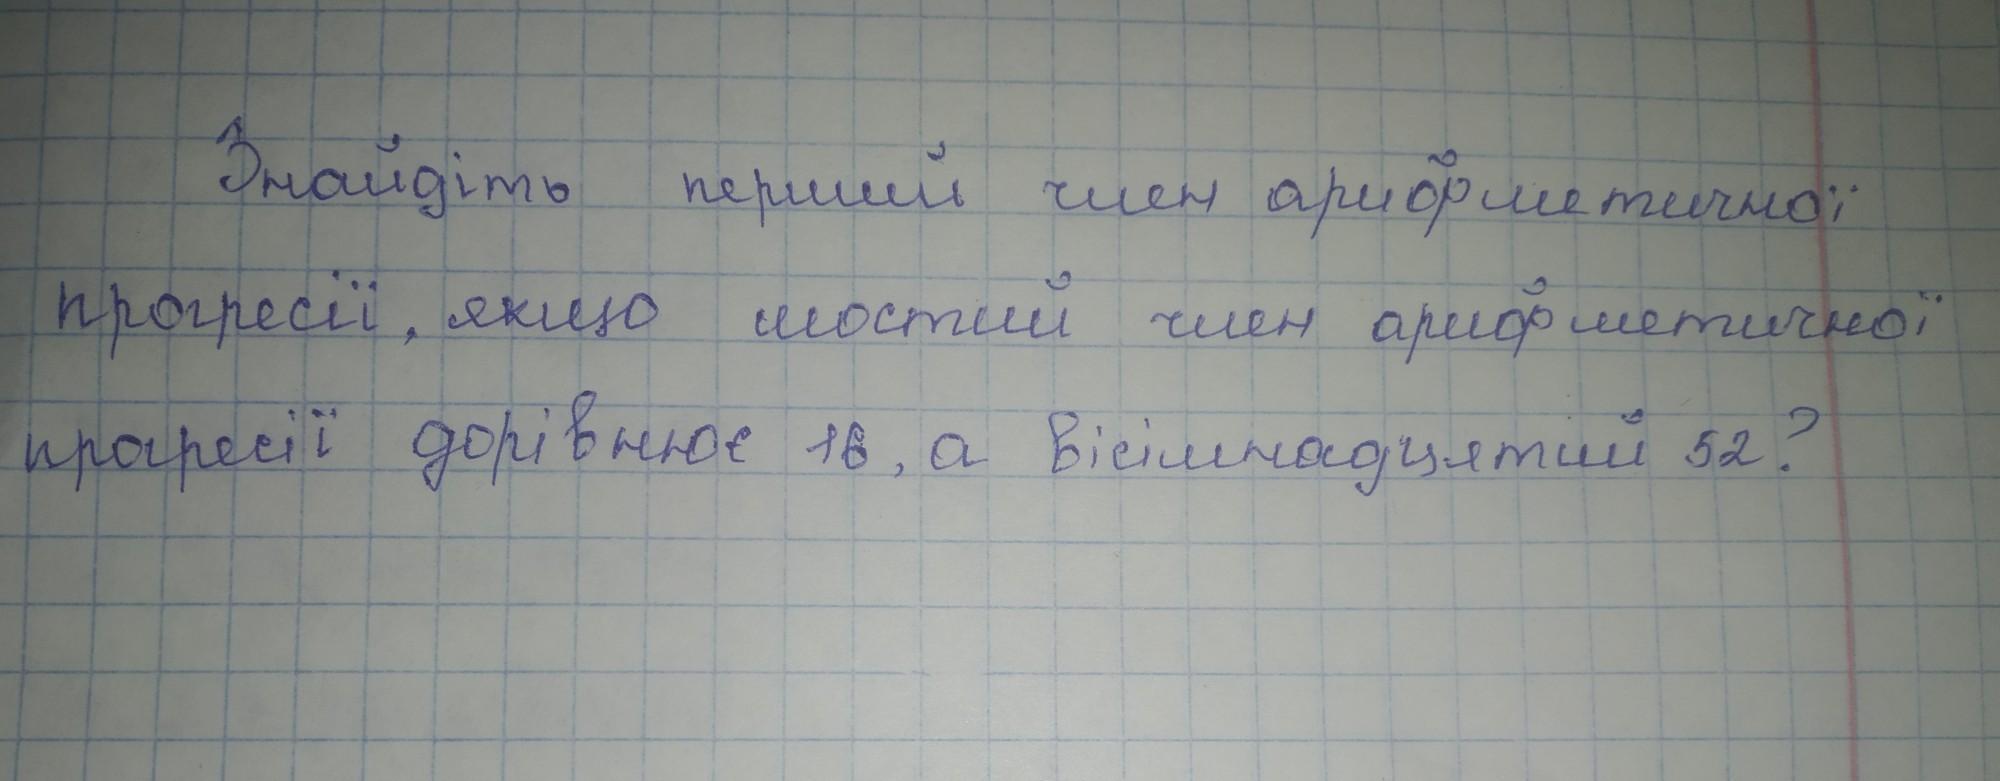 Знайдіть перший член арифметичної
прогресії, якщо шостий член арифметичної
прогресії дорівнює 16, а вісімнадцятий 52?